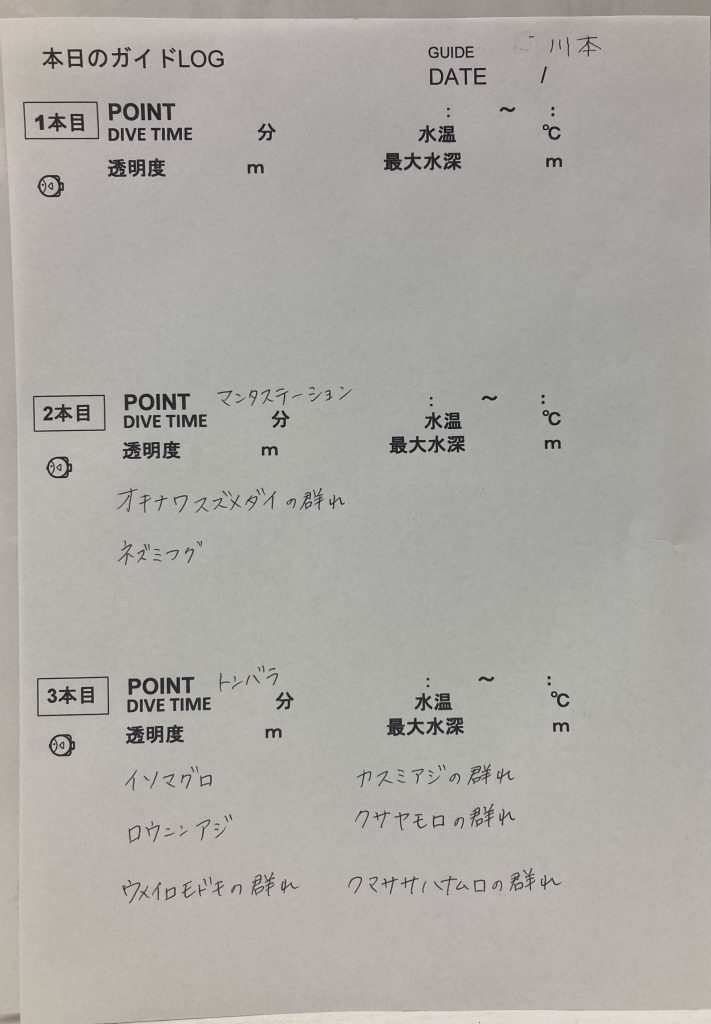 本日のガイドLOG
GUIDE 川本
DATE /
1本目 POINT : ～ :
DIVE TIME 分 水温 ℃
透明度 m 最大水深 m
2本目 POINT マンタステーション : ～ :
DIVE TIME 分 水温 ℃
透明度 m 最大水深 m
オキナワスズメダイの群れ
ネズミフグ
3本目 POINT トンバラ : ～ :
DIVE TIME 分 水温 ℃
透明度 m 最大水深 m
イソマグロ カスミアジの群れ
ロウニンアジ クサヤモロの群れ
ウメイロモドキの群れ クマササハナムロの群れ